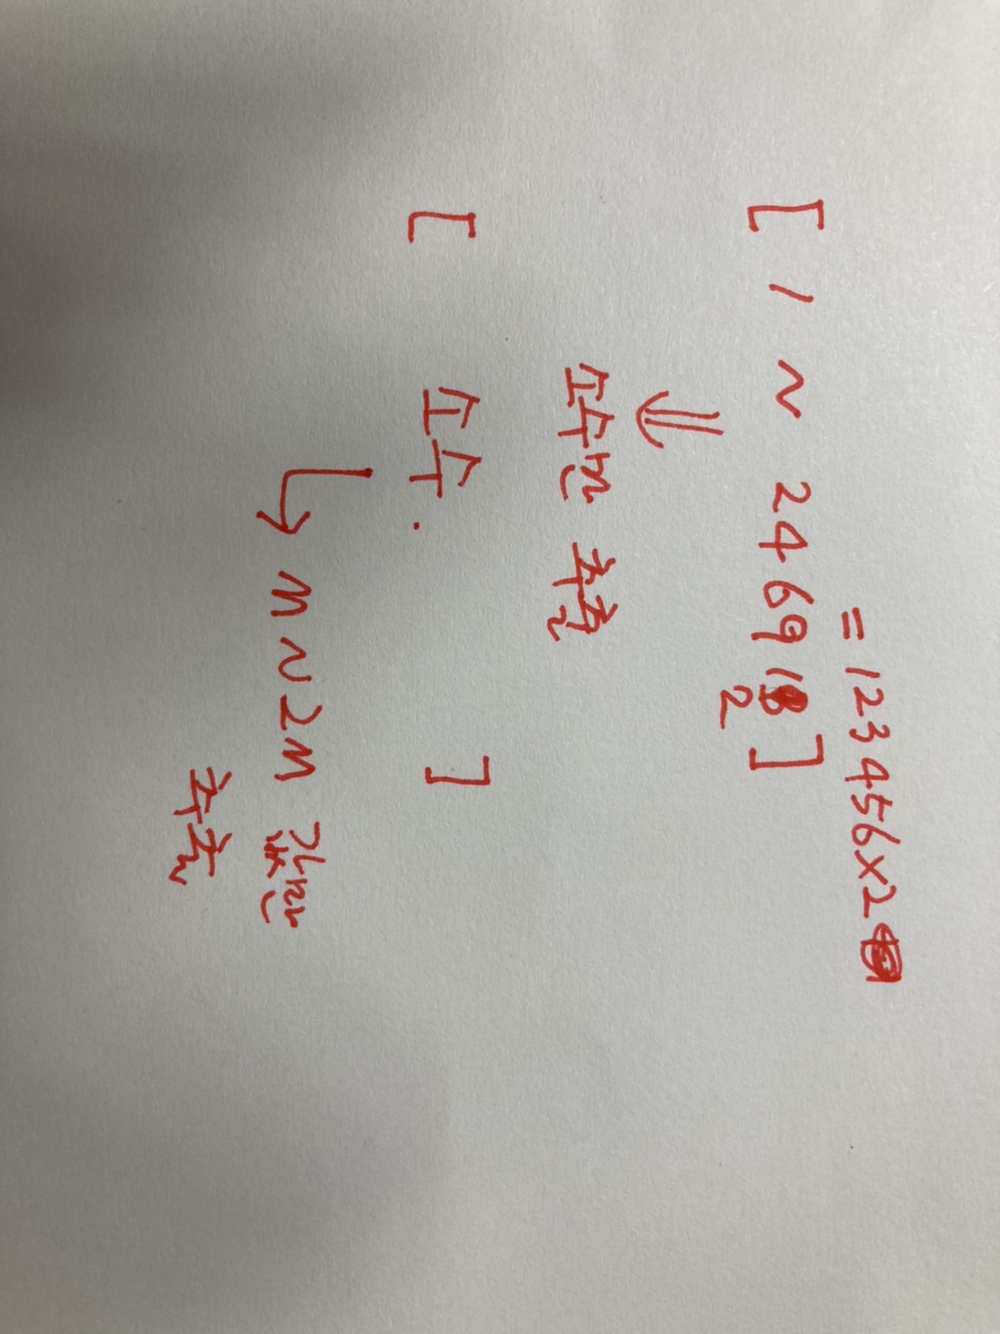 = 123456×2
[ 1 ~ 246912 ]
소수만 추출
[ 소수. ]
n~2n 값만
추출